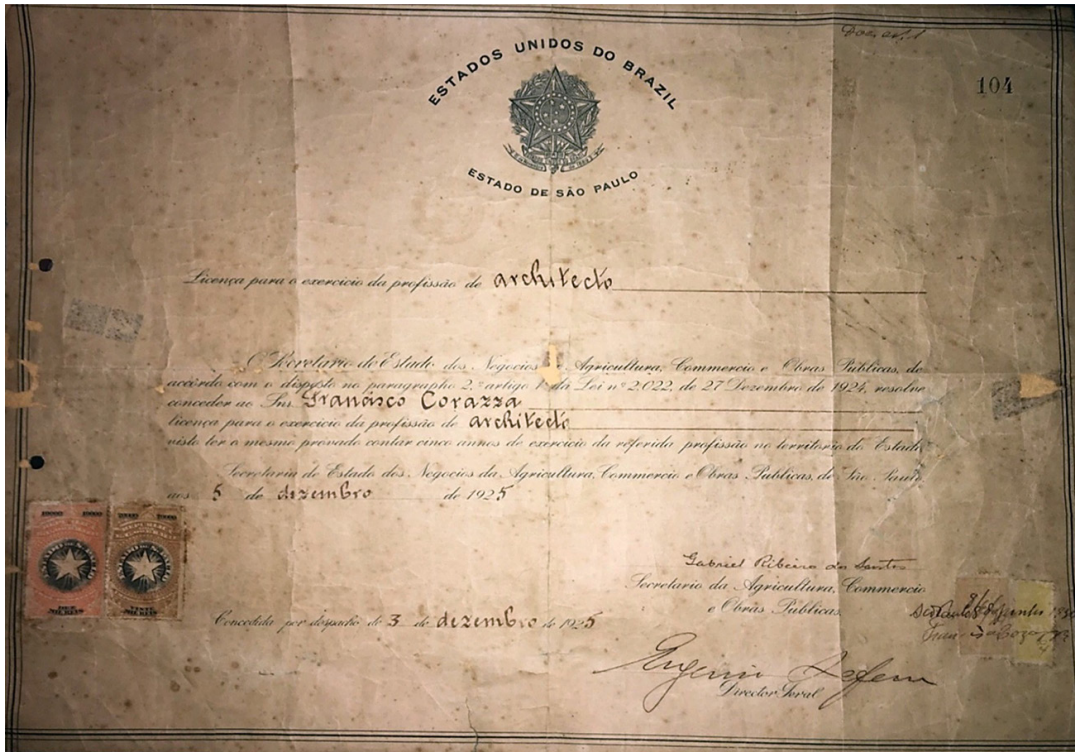 Doc. nº. 1
ESTADOS UNIDOS DO BRAZIL
104
ESTADO DE SÃO PAULO
Licença para o exercicio da profissão de architecto
O Secretario de Estado dos Negocios da Agricultura, Commercio e Obras Publicas, de
accôrdo com o disposto no paragrapho 2.º artigo 1. da Lei nº 2022, de 27 Dezembro de 1924, resolve
conceder ao Snr. Francisco Corazza
licença para o exercicio da profissão de architecto
visto ter o mesmo provado contar cinco annos de exercicio da referida profissão no territorio do Estado
Secretaria de Estado dos Negocios da Agricultura, Commercio e Obras Publicas, de São Paulo
aos 5 de dezembro de 1925
Gabriel Ribeiro dos Santos
Secretario da Agricultura, Commercio
e Obras Publicas
Concedida por despacho de 3 de dezembro de 1925
Eugenio Lefevre
Director Geral